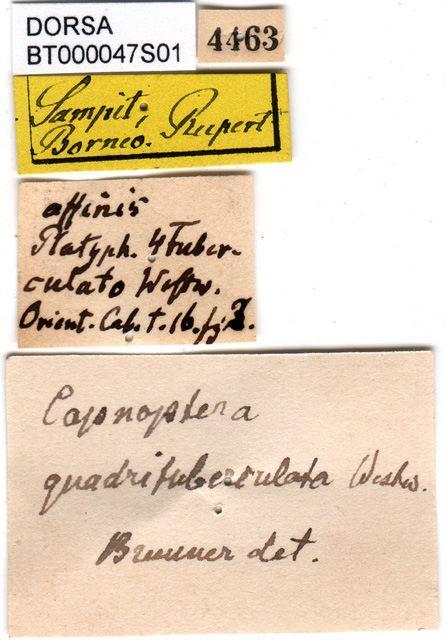 DORSA
BT000047S01
4463
Sampit, Rupert
Borneo.
affinis
Platyph. 4 Tuber-
culato Westw.
Orient. Cab. t. 16. fg 3.
Capnoptera
quadrituberculata Westw.
Brunner det.